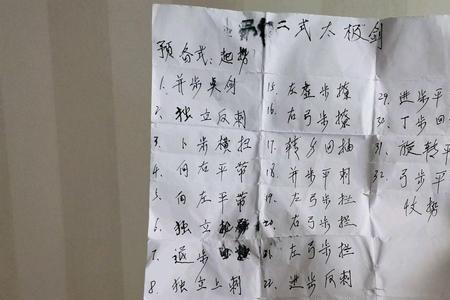 二式太极剑
预备式:起势
1. 并步点剑
2. 独立反刺
3. 卜步横扫
4. 向右平带
5. 向左平带
6. 独立
7. 退步
8. 独立上刺
15. 左虚步撩
16. 右弓步撩
17. 转身回抽
18. 并步平刺
19. 左弓步拦
20. 右弓步拦
21. 左弓步拦
22. 进步反刺
29. 进步平
30. 丁步回
31. 旋转平
32. 弓步平
收势